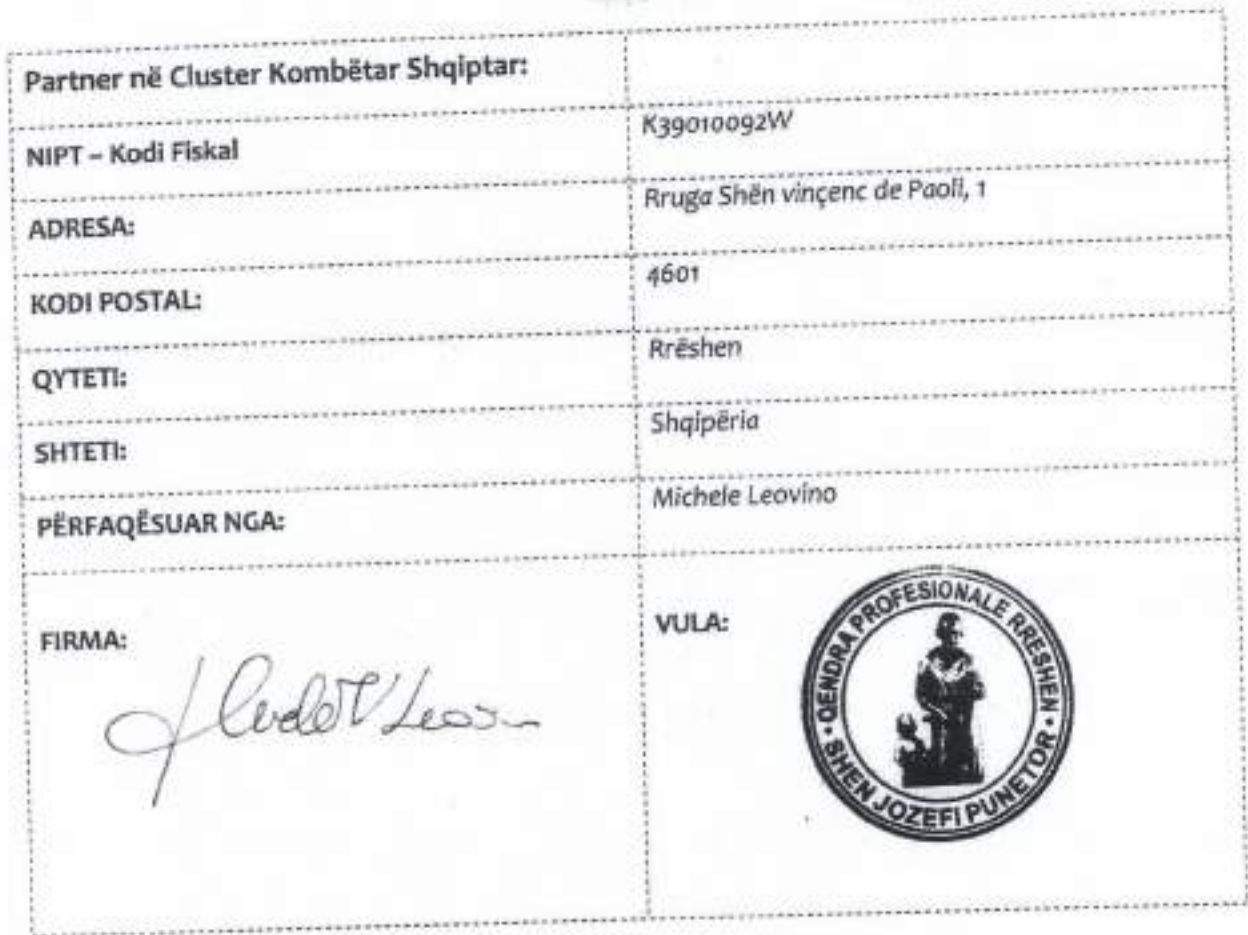 Partner në Cluster Kombëtar Shqiptar:
NIPT – Kodi Fiskal
K39010092W
ADRESA:
Rruga Shën vinçenc de Paoli, 1
KODI POSTAL:
4601
QYTETI:
Rrëshen
SHTETI:
Shqipëria
PËRFAQËSUAR NGA:
Michele Leovino
FIRMA:
VULA:
QENDRA PROFESIONALE RRESHEN
SHEN JOZEFI PUNETOR